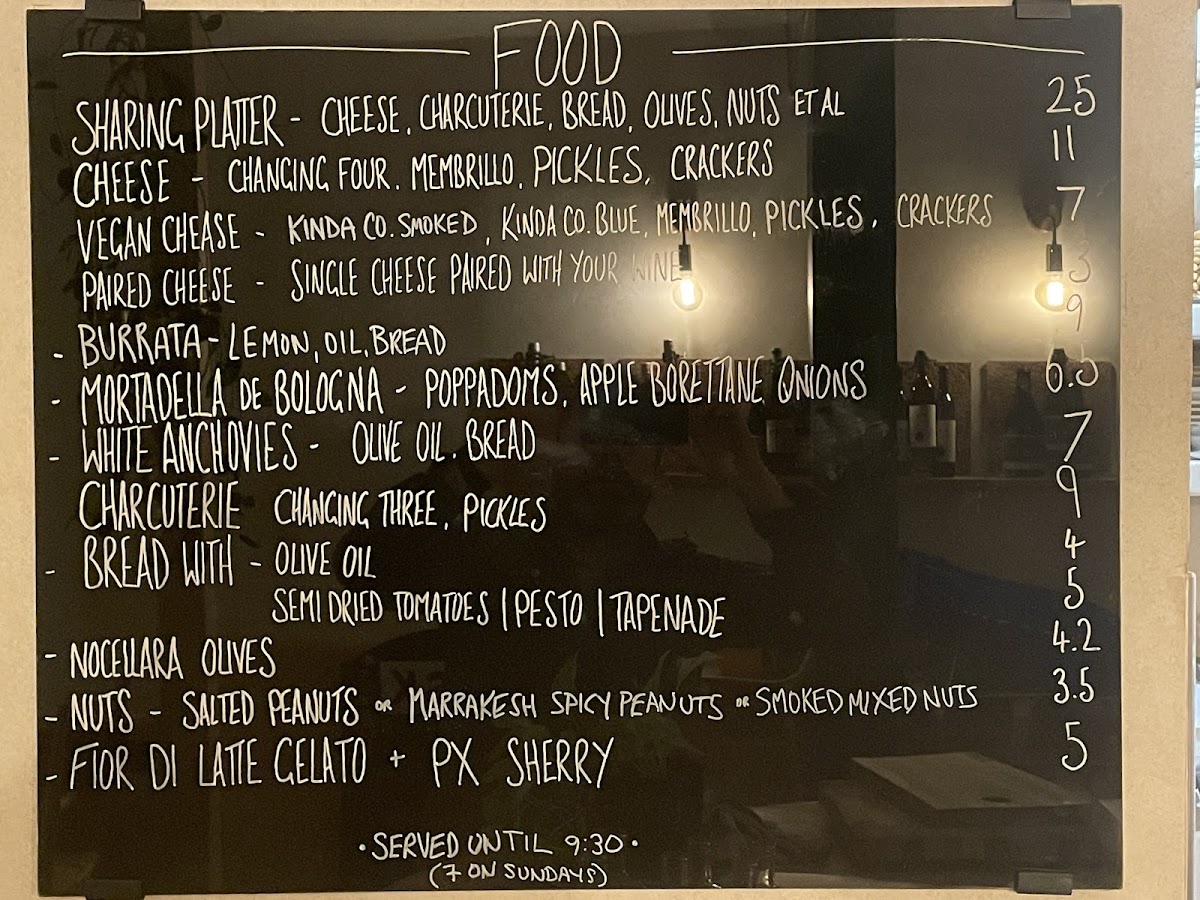 FOOD
SHARING PLATTER - CHEESE, CHARCUTERIE, BREAD, OLIVES, NUTS ET AL 25
CHEESE - CHANGING FOUR. MEMBRILLO, PICKLES, CRACKERS 11
VEGAN CHEASE - KINDA CO. SMOKED, KINDA CO. BLUE, MEMBRILLO, PICKLES, CRACKERS 7
PAIRED CHEESE - SINGLE CHEESE PAIRED WITH YOUR WINE 3
- BURRATA - LEMON, OIL, BREAD 9
- MORTADELLA DE BOLOGNA - POPPADOMS, APPLE BORETTANE ONIONS 6.5
- WHITE ANCHOVIES - OLIVE OIL. BREAD 7
CHARCUTERIE CHANGING THREE, PICKLES 9
- BREAD WITH - OLIVE OIL 4
SEMI DRIED TOMATOES | PESTO | TAPENADE 5
- NOCELLARA OLIVES 4.2
- NUTS - SALTED PEANUTS OR MARRAKESH SPICY PEANUTS OR SMOKED MIXED NUTS 3.5
- FIOR DI LATTE GELATO + PX SHERRY 5
• SERVED UNTIL 9:30 •
(7 ON SUNDAYS)